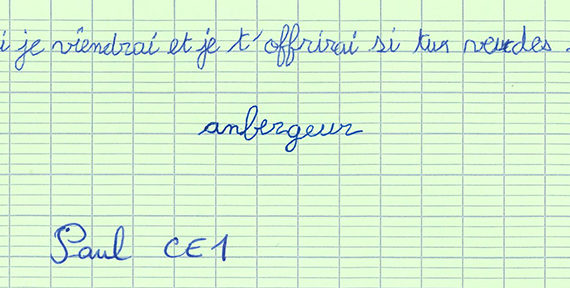 i je viendrai et je t'offrirai si tu veux des
anbergeur
Paul CE1